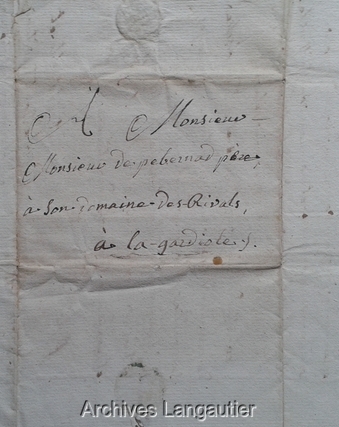 A Monsieur
Monsieur de pebernad pere,
à son domaine des Rivals,
à la gardiole).
Archives Langautier